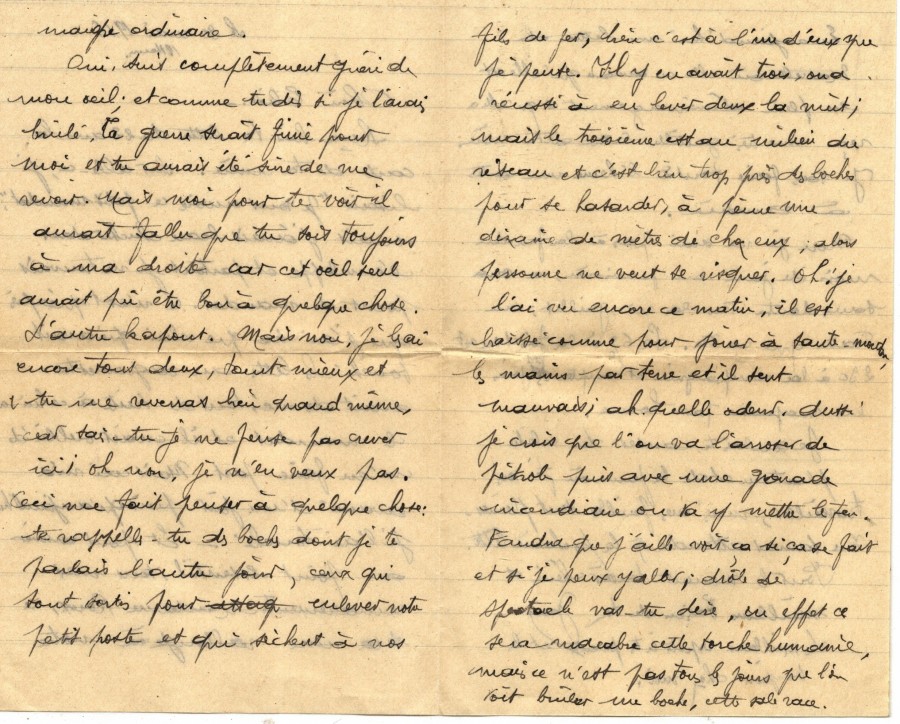 maigre ordinaire.
Oui, suis complètement guéri de
mon oeil; et comme tu dis si je l'avais
brûlé, la guerre serait finie pour
moi et tu aurais été sûre de me
revoir. Mais moi pour te voir il
aurait fallu que tu sois toujours
à ma droite car cet oeil seul
aurait pû être bon à quelque chose.
L'autre kapout. Mais non, je les ai
encore tous deux, tant mieux et
tu me reverras bien quand même,
car sais-tu je ne pense pas crever
ici! oh non, je n'en veux pas.
Ceci me fait penser à quelque chose:
te rappelles-tu des boches dont je te
parlais l'autre jour, ceux qui
sont sortis pour attaq enlever notre
petit poste et qui sèchent à nos
fils de fer, bien c'est à l'un d'eux que
je pense. Il y en avait trois, on a
réussi à en lever deux la nuit;
mais le troisième est au milieu du
réseau et c'est bien trop près des boches
pour se hasarder, à peine une
dizaine de mètres de chez eux; alors
personne ne veut se risquer. Oh! je
l'ai vu encore ce matin, il est
baissé comme pour jouer à saute mouton,
les mains par terre et il sent
mauvais; ah quelle odeur. Aussi
je crois que l'on va l'arroser de
pétrole puis avec une grenade
incendiaire on va y mettre le feu.
Faudra que j'aille voir ça si ça se fait
et si je peux y aller; drôle de
spectacle vas-tu dire, en effet ce
sera macabre cette torche humaine,
mais ce n'est pas tous les jours que l'on
voit brûler un boche, cette sale race.